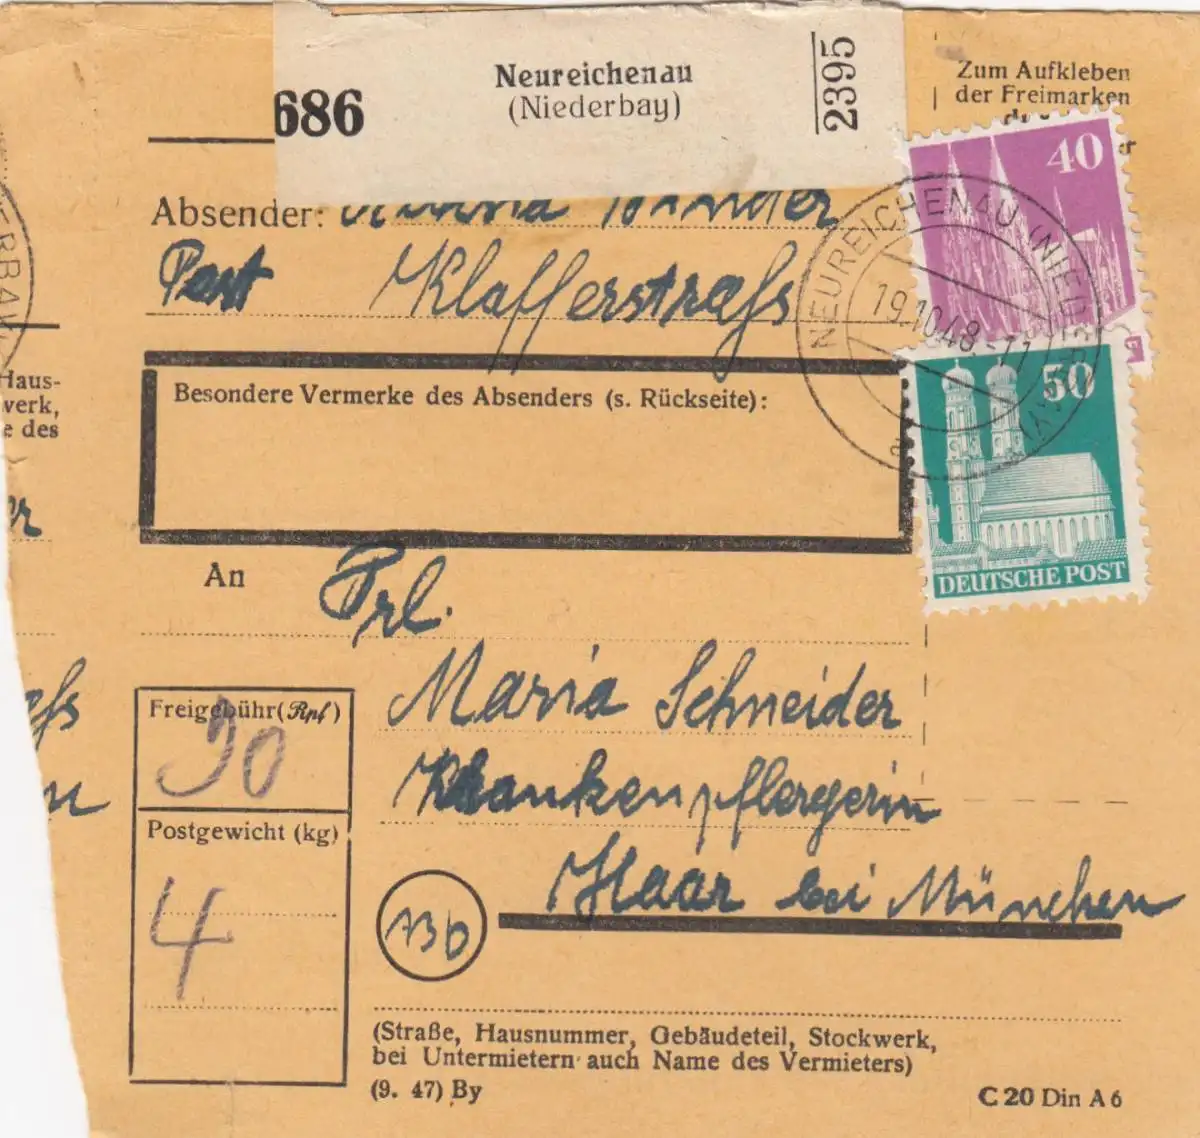 686
Neureichenau
(Niederbay)
2395
Zum Aufkleben
der Freimarken
40
Absender:
Post Klafferstraß
NEUREICHENAU (NIEDERBAY)
19.10.48.-11
50
DEUTSCHE POST
Haus-
werk,
e des
Besondere Vermerke des Absenders (s. Rückseite):
An Frl.
Maria Schneider
Krankenpflergerin
Haar bei München
Freigebühr (Rpf)
90
Postgewicht (kg)
4
13b
(Straße, Hausnummer, Gebäudeteil, Stockwerk,
bei Untermietern auch Name des Vermieters)
(9. 47) By
C 20 Din A 6